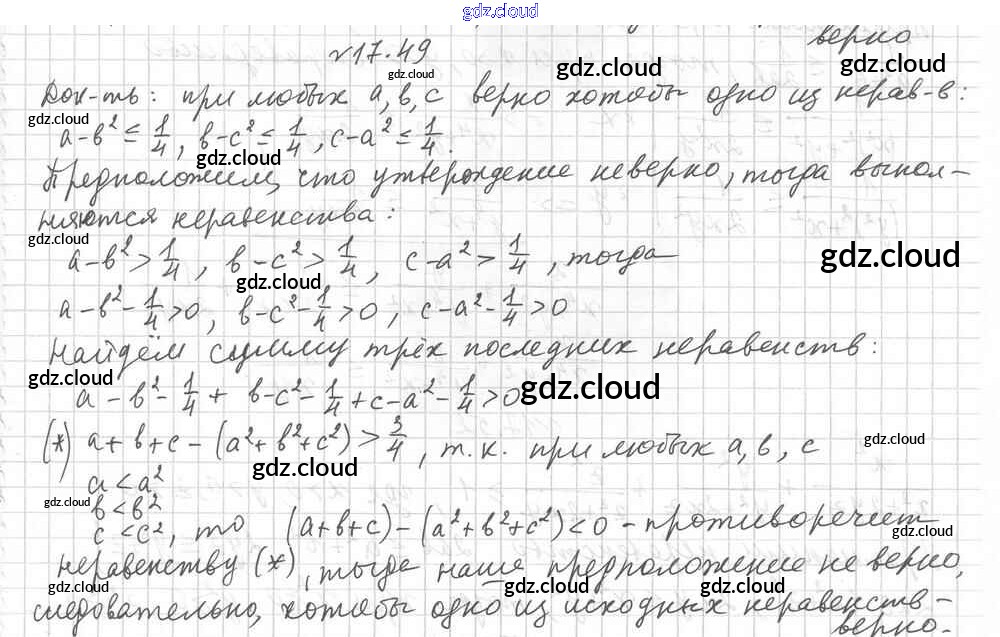 gdz.cloud
верно
№17.49
gdz.cloud gdz.cloud gdz.cloud
Док-ть: при любых a, b, c верно хотябы одно из нерав-в:
gdz.cloud
a-b² ≤ 1/4, b-c² ≤ 1/4, c-a² ≤ 1/4.
gdz.cloud
Предположим, что утверждение неверно, тогда выпол-
няются неравенства:
gdz.cloud
a-b² > 1/4, b-c² > 1/4, c-a² > 1/4, тогда
gdz.cloud
gdz.cloud
a-b²-1/4>0, b-c²-1/4>0, c-a²-1/4>0
Найдём сумму трёх последних неравенств:
gdz.cloud
gdz.cloud
a-b²-1/4+b-c²-1/4+c-a²-1/4>0
(*) a+b+c-(a²+b²+c²)>3/4, т.к. при любых a, b, c
gdz.cloud
gdz.cloud
a<a²
gdz.cloud
b<b²
c<c², то (a+b+c)-(a²+b²+c²)<0 - противоречит
gdz.cloud
неравенству (*), тогда наше предположение не верно,
gdz.cloud gdz.cloud gdz.cloud
следовательно, хотябы одно из исходных неравенств-
верно.